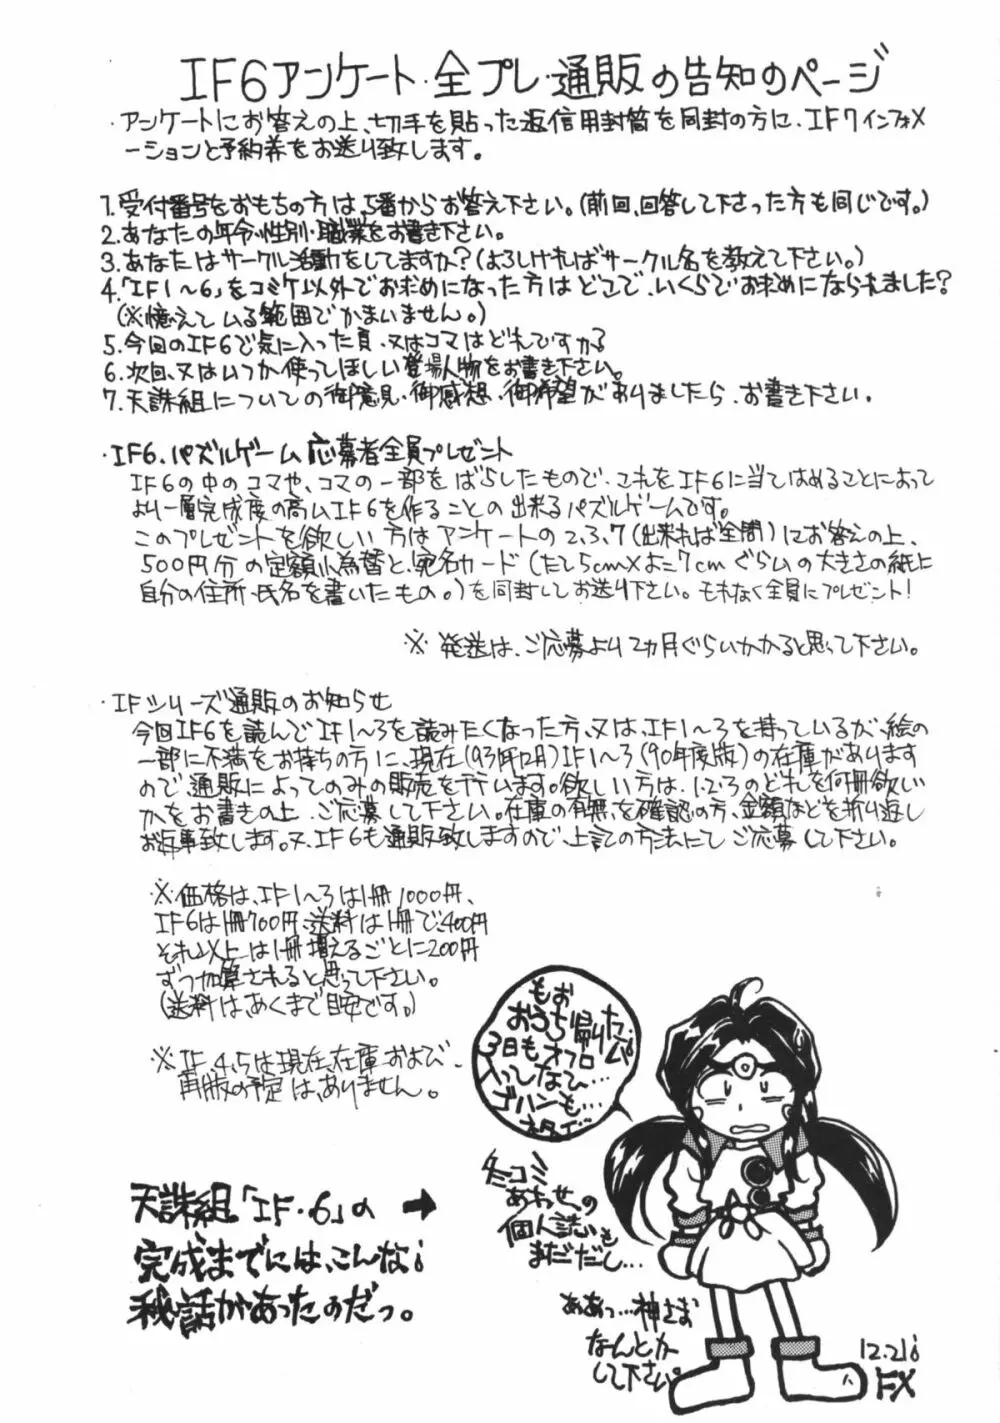 IF6アンケート・全プレ・通販の告知のページ
・アンケートにお答えの上、切手を貼った返信用封筒を同封の方に、IF7インフォメ
ーションと予約券をお送り致します。
1.受付番号をおもちの方は、5番からお答え下さい。(前回、回答して下さった方も同じです。)
2.あなたの年令・性別・職業をお書き下さい。
3.あなたはサークル活動をしてますか?(よろしければサークル名を教えて下さい。)
4.「IF1〜6」をコミケ以外でお求めになった方はどこで、いくらでお求めになられました?
(※憶えている範囲でかまいません。)
5.今回のIF6で気に入った頁、又はコマはどれですかる
6.次回、又はいつか使ってほしい登場人物をお書き下さい。
7.天誅組についての御意見・御感想・御希望がありましたら、お書き下さい。
・IF6、パズルゲーム応募者全員プレゼント
IF6の中のコマや、コマの一部をばらしたもので、これをIF6に当てはめることによって
より一層完成度の高いIF6を作ることの出来るパズルゲームです。
このプレゼントを欲しい方はアンケートの2、3、7(出来れば全問)にお答えの上、
500円分の定額小為替と、宛名カード(たて5cm×よこ7cmぐらいの大きさの紙に
自分の住所・氏名を書いたもの。)を同封してお送り下さい。もれなく全員にプレゼント!
※発送は、ご応募より2ヵ月ぐらいかかると思って下さい。
・IFシリーズ通販のお知らせ
今回IF6を読んでIF1〜3を読みたくなった方、又は、IF1〜3を持っているが、絵の
一部に不満をお持ちの方に、現在(93年12月)IF1〜3(90年度版)の在庫があります
ので通販によってのみの販売を行います。欲しい方は、1.2.3のどれを何冊欲しい
かをお書きの上、ご応募して下さい。在庫の有無を確認の方、金額などを折り返し
お返事致します。又、IF6も通販致しますので、上記の方法にてご応募して下さい。
※価格は、IF1〜3は1冊1000円、
IF6は1冊700円、送料は1冊で、400円
それ以上は1冊増えるごとに200円
ずつ加算されると思って下さい。
(送料は、あくまで目安です。)
※IF、4、5は現在、在庫および、
再版の予定は、ありません。
もお
おうち帰りた、
3日もオフロ
入ってなひ…
ゴハンも…
冬コミ
あわせの
個人誌も
まだだし…
ああっ…神さま
なんとか
して下さい。
天誅組「IF・6」の →
完成までには、こんな
秘話があったのだっ。
12.21
FX